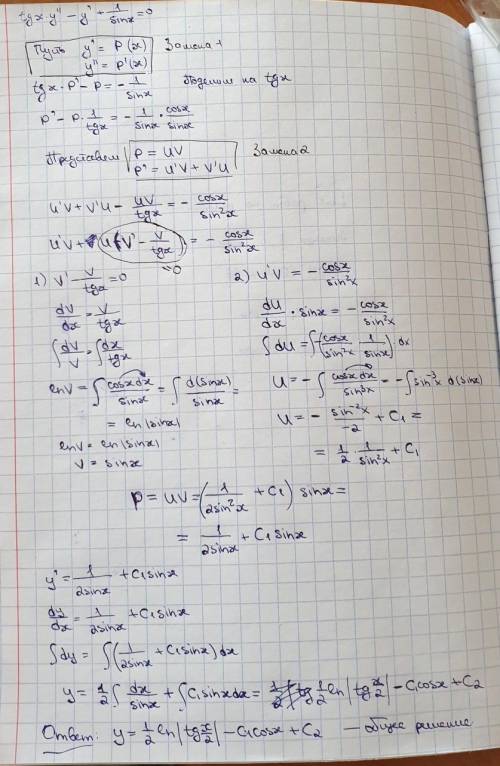 tgx·y'' − y' + 1/sinx = 0
Пусть y' = P(x) Замена 1
y'' = P'(x)
tgx·P' − P = − 1/sinx Поделим на tgx
P' − P·1/tgx = − 1/sinx · cosx/sinx
Представим P = UV Замена 2
P' = U'V + V'U
U'V + V'U − UV/tgx = − cosx/sin²x
U'V + U(V' − V/tgx) = − cosx/sin²x
=0
1) V' − V/tgx = 0 2) U'V = − cosx/sin²x
dV/dx = V/tgx dU/dx · sinx = − cosx/sin²x
∫dV/V = ∫dx/tgx ∫dU = ∫(−cosx/sin²x · 1/sinx)·dx
lnV = ∫cosxdx/sinx = ∫d(sinx)/sinx = U = −∫cosxdx/sin³x = −∫sin⁻³x d(sinx)
= ln|sinx| U = − sin⁻²x/−2 + C₁ =
lnV = ln|sinx| = 1/2 · 1/sin²x + C₁
V = sinx
P = UV = (1/2sin²x + C₁) sinx =
= 1/2sinx + C₁sinx
y' = 1/2sinx + C₁sinx
dy/dx = 1/2sinx + C₁sinx
∫dy = ∫(1/2sinx + C₁sinx)dx
y = 1/2∫dx/sinx + ∫C₁sinxdx = 1/2 ln|tg x/2| − C₁cosx + C₂
Ответ: y = 1/2 ln|tg x/2| − C₁cosx + C₂ — общее решение